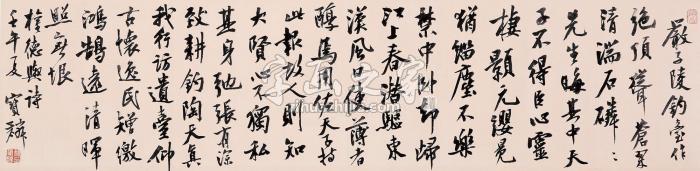 嚴子陵釣臺作
絕頂聳蒼翠
清湍石磷々
先生晦其中天
子不得臣心靈
棲顥元纓冕
猶緇塵不樂
禁中卧却歸
江上春潛驅東
漢風日使薄者
醇焉用佐天子特
此報故人則知
大賢心不獨私
其身弛張有深
致耕釣陶天真
我行訪遺臺仰
古懷逸民矰繳
鴻鵠遠清暉
照無垠
權德輿詩
壬午夏 寶麟
字画之家